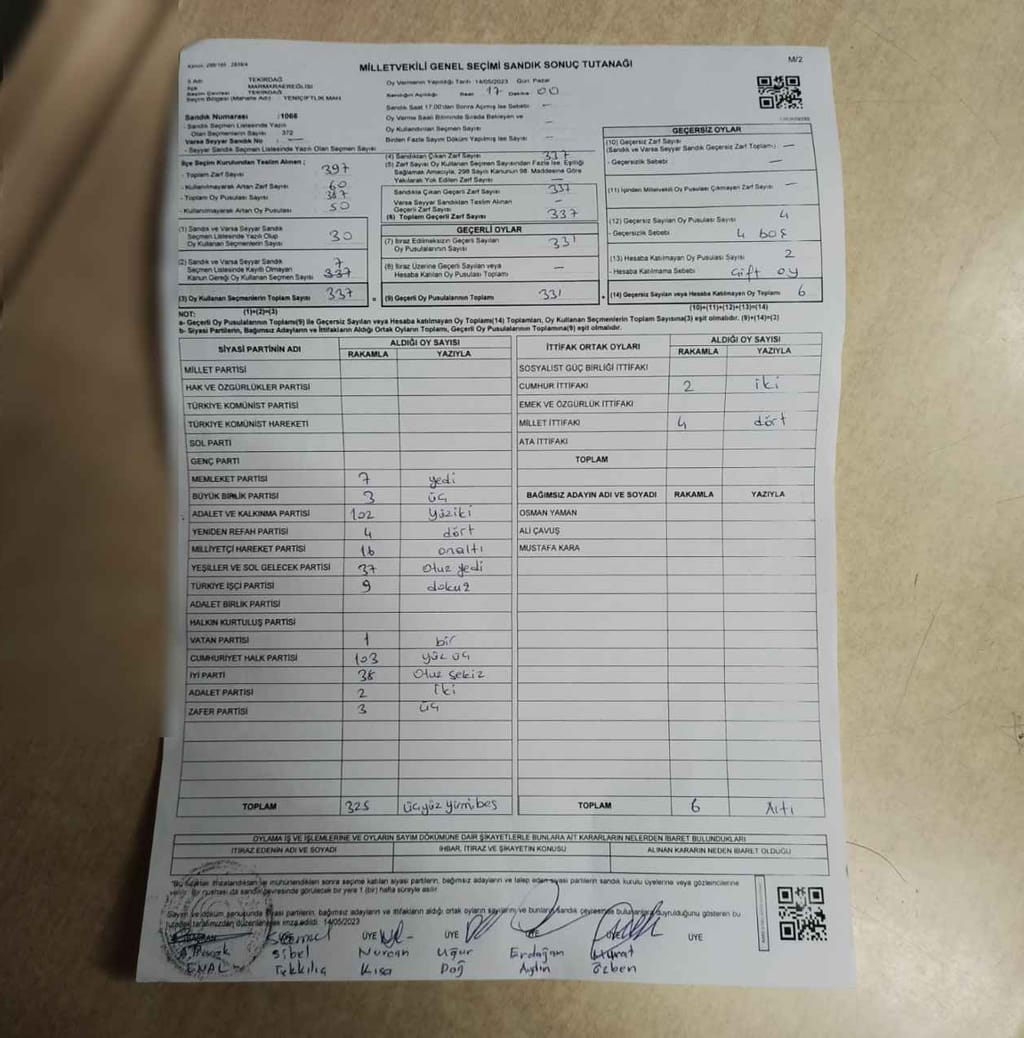 MİLLETVEKİLİ GENEL SEÇİMİ SANDIK SONUÇ TUTANAĞI
M/2
İl Adı TEKİRDAĞ
İlçe MARMARAEREĞLİSİ
Seçim Çevresi TEKİRDAĞ
Seçim Bölgesi (Mahalle Adı) YENİÇİFTLİK MAH.
Oy Vermenin Yapıldığı Tarih 14/05/2023 Gün: Pazar
Sandığın Açıldığı Saat 17 Dakika 00
Sandık Saat 17.00'dan Sonra Açılmış İse Sebebi —
Oy Verme Saati Bitiminde Sırada Bekleyen ve
Oy Kullandırılan Seçmen Sayısı —
Birden Fazla Sayım Döküm Yapılmış İse Sayısı —
Sandık Numarası :1066
- Sandık Seçmen Listesinde Yazılı
Olan Seçmenlerin Sayısı 372
Varsa Seyyar Sandık No —
- Seyyar Sandık Seçmen Listesinde Yazılı Olan Seçmen Sayısı
İlçe Seçim Kurulundan Teslim Alınan ;
- Toplam Zarf Sayısı 397
- Kullanılmayarak Artan Zarf Sayısı 60
- Toplam Oy Pusulası Sayısı 387
- Kullanılmayarak Artan Oy Pusulası 50
(1) Sandık ve Varsa Seyyar Sandık
Seçmen Listesinde Yazılı Olup
Oy Kullanan Seçmenlerin Sayısı 30
(2) Sandık ve Varsa Seyyar Sandık
Seçmen Listesinde Kayıtlı Olmayan
Kanun Gereği Oy Kullanan Seçmen Sayısı 7
337
(3) Oy Kullanan Seçmenlerin Toplam Sayısı 337
(1)+(2)=(3)
(4) Sandıktan Çıkan Zarf Sayısı 337
(5) Zarf Sayısı Oy Kullanan Seçmen Sayısından Fazla İse, Eşitliği
Sağlamak Amacıyla, 298 Sayılı Kanunun 98. Maddesine Göre
Yakılarak Yok Edilen Zarf Sayısı —
Sandıkta Çıkan Geçerli Zarf Sayısı 337
Varsa Seyyar Sandıktan Teslim Alınan
Geçerli Zarf Sayısı —
(6) Toplam Geçerli Zarf Sayısı 337
GEÇERLİ OYLAR
(7) İtiraz Edilmeksizin Geçerli Sayılan
Oy Pusulalarının Sayısı 331
(8) İtiraz Üzerine Geçerli Sayılan veya
Hesaba Katılan Oy Pusulası Toplamı —
(9) Geçerli Oy Pusulalarının Toplamı 331
GEÇERSİZ OYLAR
(10) Geçersiz Zarf Sayısı
(Sandık ve Varsa Seyyar Sandık Geçersiz Zarf Toplamı) —
- Geçersizlik Sebebi —
(11) İçinden Milletvekili Oy Pusulası Çıkmayan Zarf Sayısı —
(12) Geçersiz Sayılan Oy Pusulası Sayısı 4
- Geçersizlik Sebebi 4 boş
(13) Hesaba Katılmayan Oy Pusulası Sayısı 2
- Hesaba Katılmama Sebebi Çift oy
(14) Geçersiz Sayılan veya Hesaba Katılmayan Oy Toplamı 6
(10)+(11)+(12)+(13)=(14)
NOT:
a- Geçerli Oy Pusulaları Toplamı(9) ile Geçersiz Sayılan veya Hesaba Katılmayan Oy Toplamı(14) Toplamları, Oy Kullanan Seçmenlerin Toplam Sayısına(3) eşit olmalıdır. (9)+(14)=(3)
b- Siyasi Partilerin, Bağımsız Adayların ve İttifakların Aldığı Ortak Oyların Toplamı, Geçerli Oy Pusulalarının Toplamına(9) eşit olmalıdır.
SİYASİ PARTİNİN ADI ALDIĞI OY SAYISI
RAKAMLA YAZIYLA
MİLLET PARTİSİ
HAK VE ÖZGÜRLÜKLER PARTİSİ
TÜRKİYE KOMÜNİST PARTİSİ
TÜRKİYE KOMÜNİST HAREKETİ
SOL PARTİ
GENÇ PARTİ
MEMLEKET PARTİSİ 7 yedi
BÜYÜK BİRLİK PARTİSİ 3 üç
ADALET VE KALKINMA PARTİSİ 102 yüziki
YENİDEN REFAH PARTİSİ 4 dört
MİLLİYETÇİ HAREKET PARTİSİ 16 onaltı
YEŞİLLER VE SOL GELECEK PARTİSİ 37 Otuz yedi
TÜRKİYE İŞÇİ PARTİSİ 9 dokuz
ADALET BİRLİK PARTİSİ
HALKIN KURTULUŞ PARTİSİ
VATAN PARTİSİ 1 bir
CUMHURİYET HALK PARTİSİ 103 yüz üç
İYİ PARTİ 38 Otuz sekiz
ADALET PARTİSİ 2 İki
ZAFER PARTİSİ 3 üç
TOPLAM 325 üçyüz yirmibeş
İTTİFAK ORTAK OYLARI ALDIĞI OY SAYISI
RAKAMLA YAZIYLA
SOSYALİST GÜÇ BİRLİĞİ İTTİFAKI
CUMHUR İTTİFAKI 2 iki
EMEK VE ÖZGÜRLÜK İTTİFAKI
MİLLET İTTİFAKI 4 dört
ATA İTTİFAKI
TOPLAM
BAĞIMSIZ ADAYIN ADI VE SOYADI RAKAMLA YAZIYLA
OSMAN YAMAN
ALİ ÇAVUŞ
MUSTAFA KARA
TOPLAM 6 Altı
OYLAMA İŞ VE İŞLEMLERİNE VE OYLARIN SAYIM DÖKÜMÜNE DAİR ŞİKAYETLERLE BUNLARA AİT KARARLARIN NELERDEN İBARET BULUNDUKLARI
İTİRAZ EDENİN ADI VE SOYADI İHBAR, İTİRAZ VE ŞİKAYETİN KONUSU ALINAN KARARIN NEDEN İBARET OLDUĞU
ÜYE ÜYE ÜYE
Sibel Nurcan Uğur Erdoğan Murat
ÜNAL Tekkılıç Kısa Dağ Aylin Özben